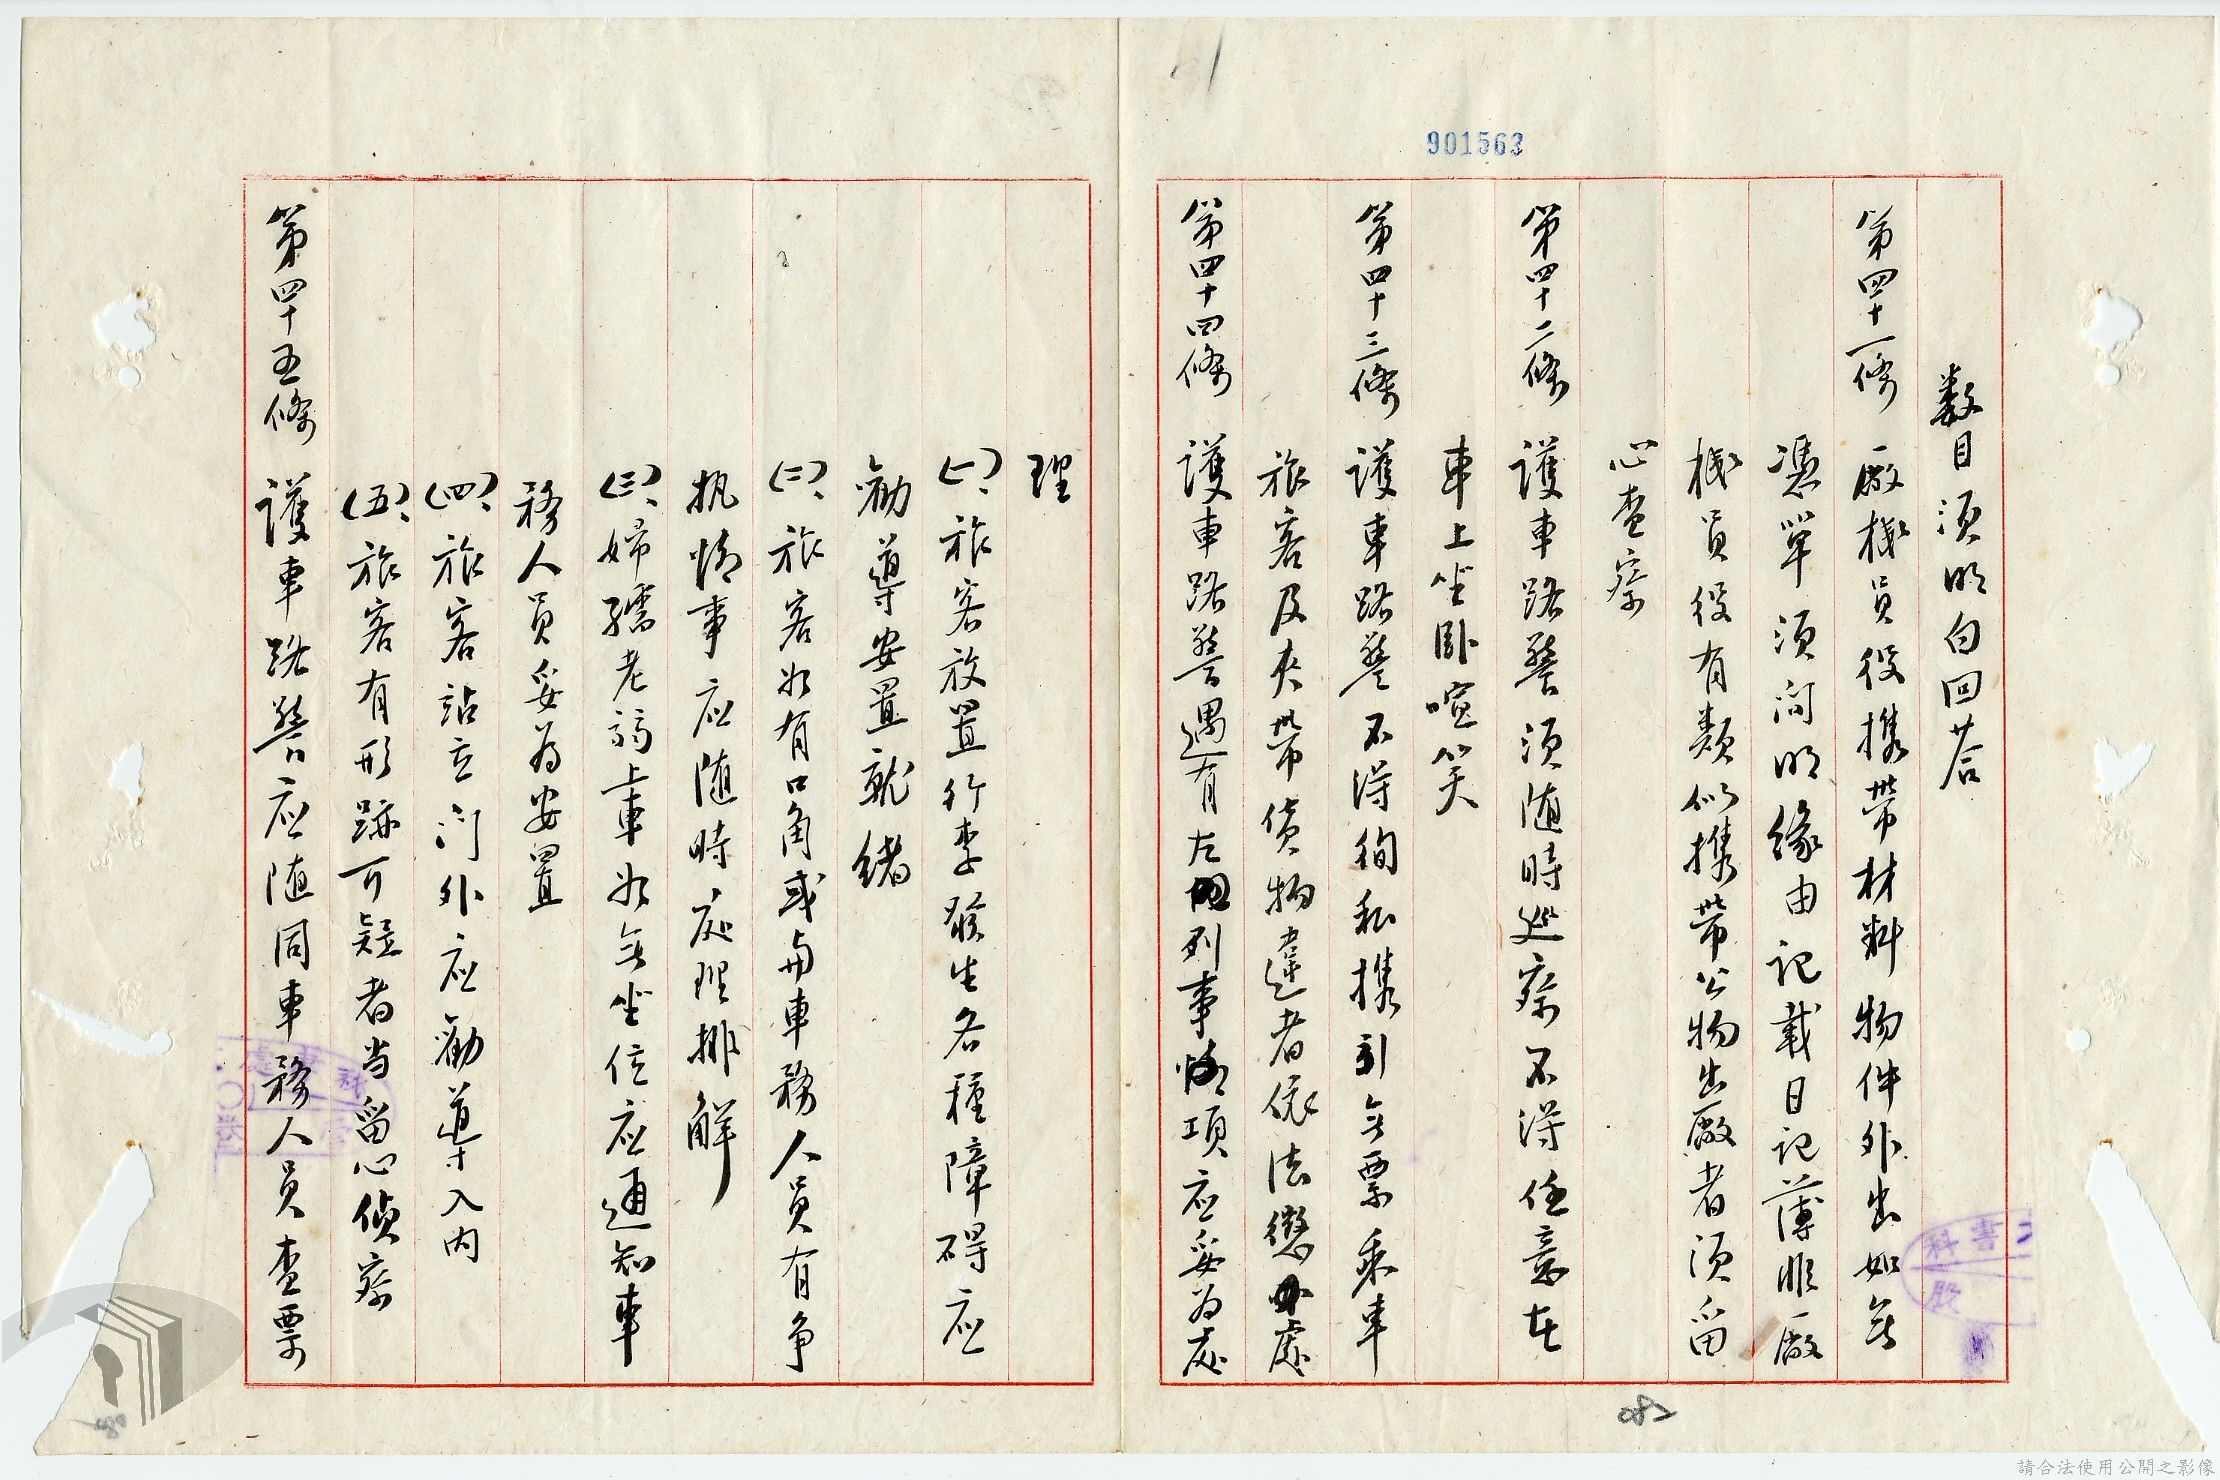 901563
数目須明白回答
第四十一條 廠棧員役携帶材料物件外出如無
憑單須问明緣由记載日记薄非廠
棧員役有類似携帶公物出廠者須留
心查察
第四十二條 護車路警須随時巡察不得任意在
車上坐卧喧笑
第四十三條 護車路警不得徇私携引无票乘車
旅客及夾帶货物違者依法懲處
第四十四條 護車路警遇有左列事項应妥为处
理
(一)、旅客放置行李發生各種障碍应
勸導安置就緒
(二)、旅客如有口角或与車務人員有争
执情事应随時处理排解
(三)、婦孺老弱上車如无坐位应通知車
務人員妥为安置
(四)、旅客站立门外应勸導入内
(五)、旅客有形跡可疑者当留心侦察
第四十五條 護車路警应随同車務人員查票
082
請合法使用公開之影像